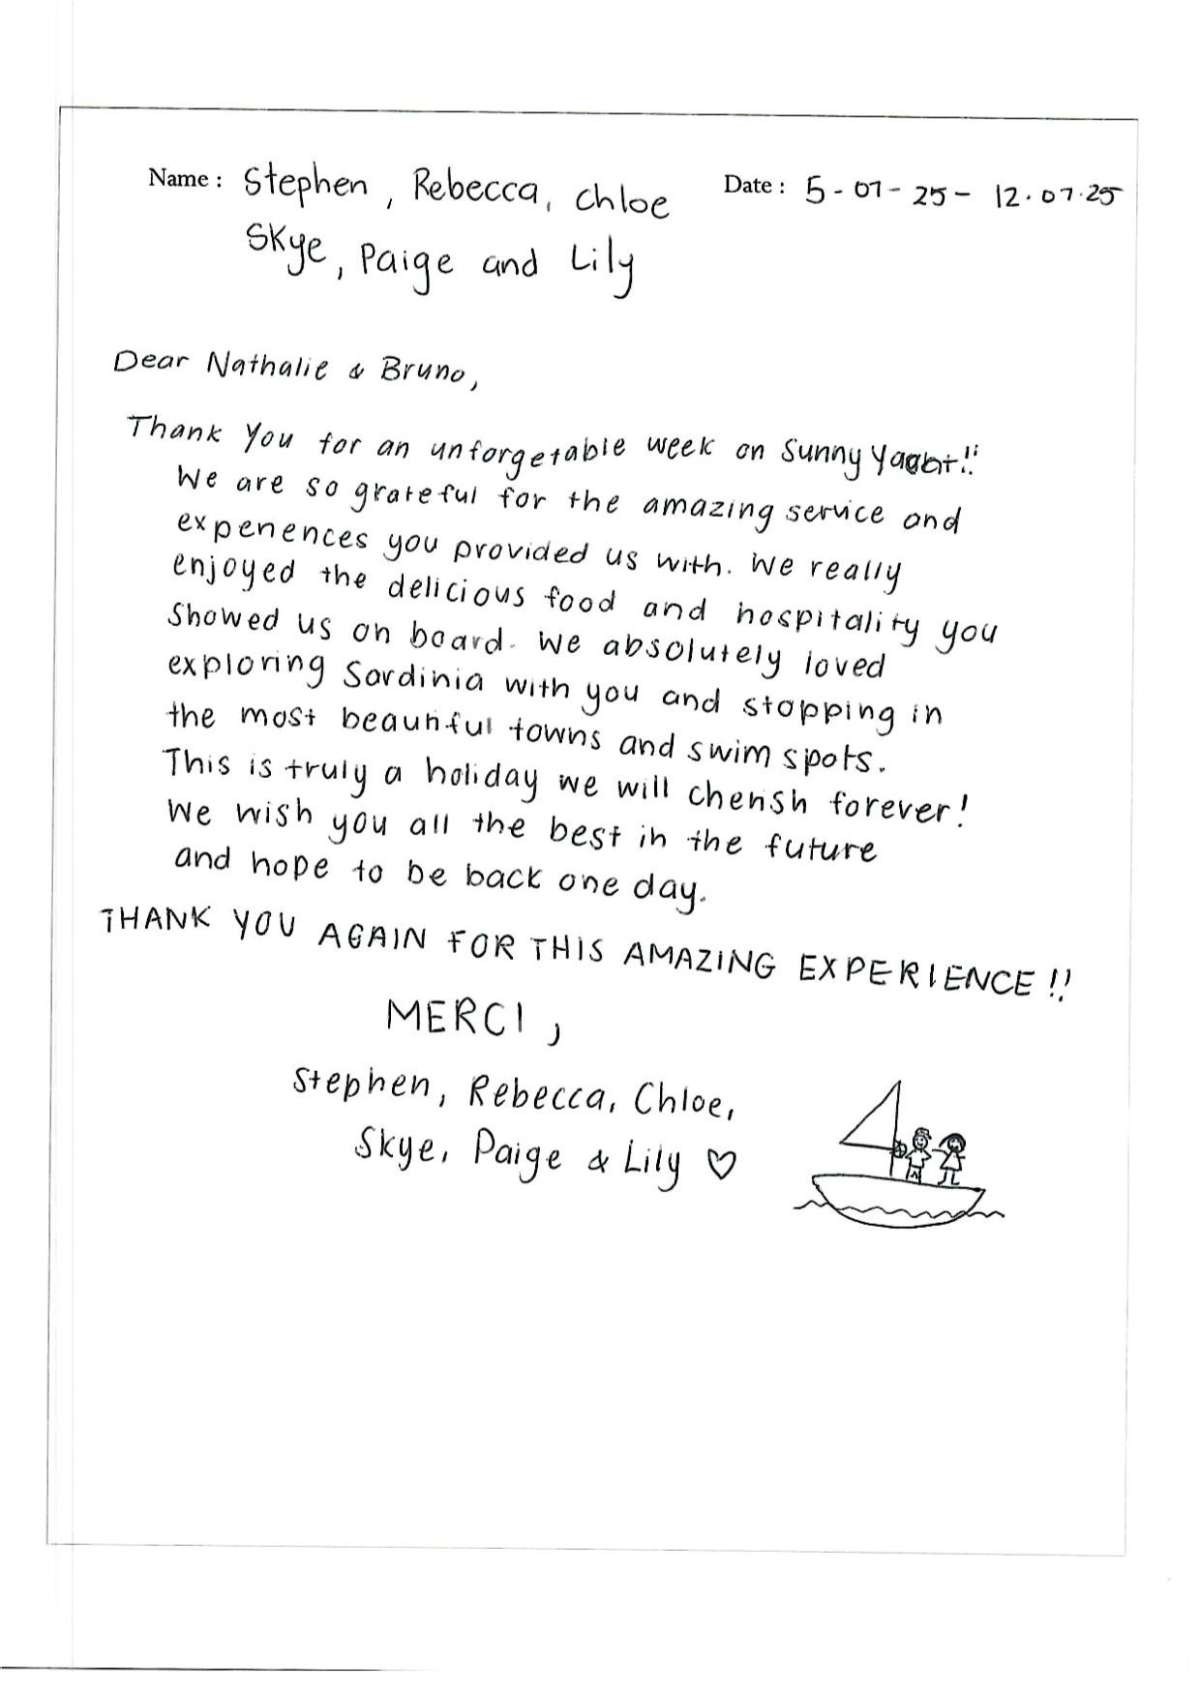 Name : Stephen, Rebecca, Chloe
Skye, Paige and Lily
Date : 5-07-25 - 12.07.25
Dear Nathalie & Bruno,
Thank you for an unforgetable week on Sunny Yacht!!
We are so grateful for the amazing service and
experiences you provided us with. We really
enjoyed the delicious food and hospitality you
showed us on board. We absolutely loved
exploring Sardinia with you and stopping in
the most beautiful towns and swim spots.
This is truly a holiday we will cherish forever!
We wish you all the best in the future
and hope to be back one day.
THANK YOU AGAIN FOR THIS AMAZING EXPERIENCE!!
MERCI,
Stephen, Rebecca, Chloe,
Skye, Paige & Lily ♡